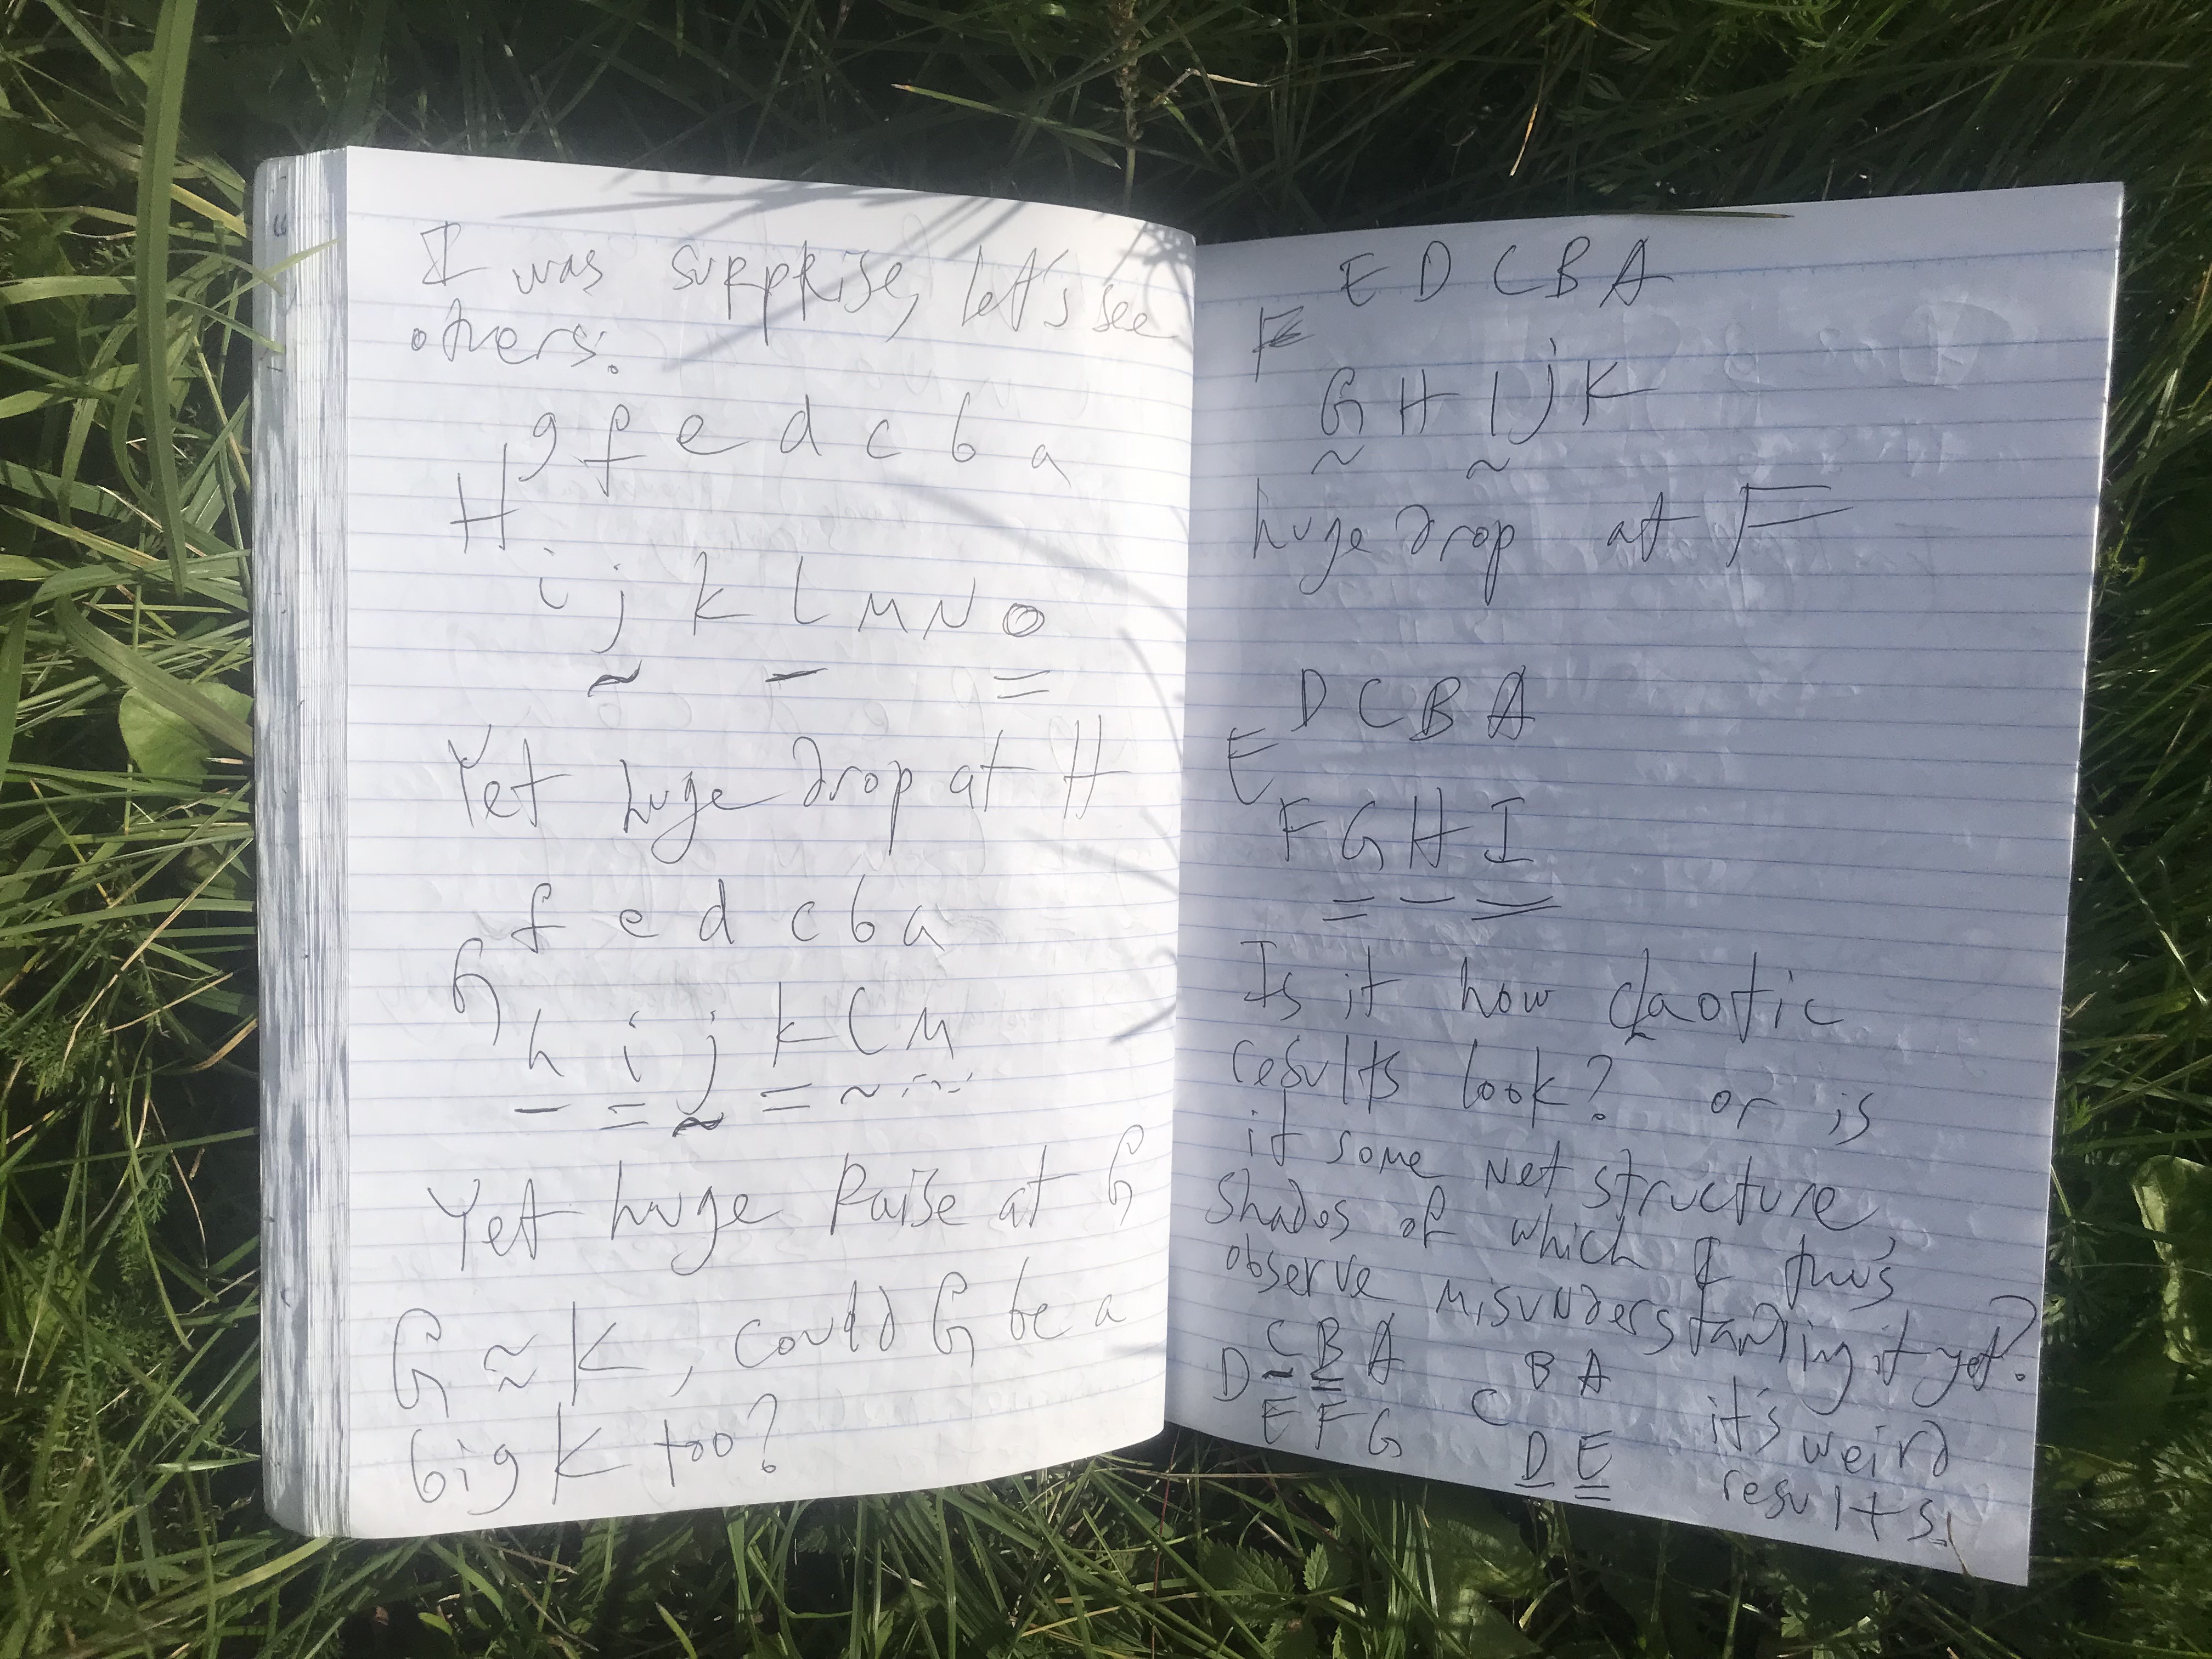 I was suppRise, let's see
others:
H g f e d c b a
i j k l m n o
~ - =
Yet huge drop at H
G f e d c b a
h i j k l m
- = ~ = ~
Yet huge Raise at G
G ≈ K, could G be a
big K too?
E D C B A
G H I J K
~ ~
huge drop at F
E D C B A
F G H I
= - =
Is it how qaotic
results look? or is
it some net structure
shados of which I thus
observe misunderstanding it yet?
D C B A C B A it's weird
E F G D E results!